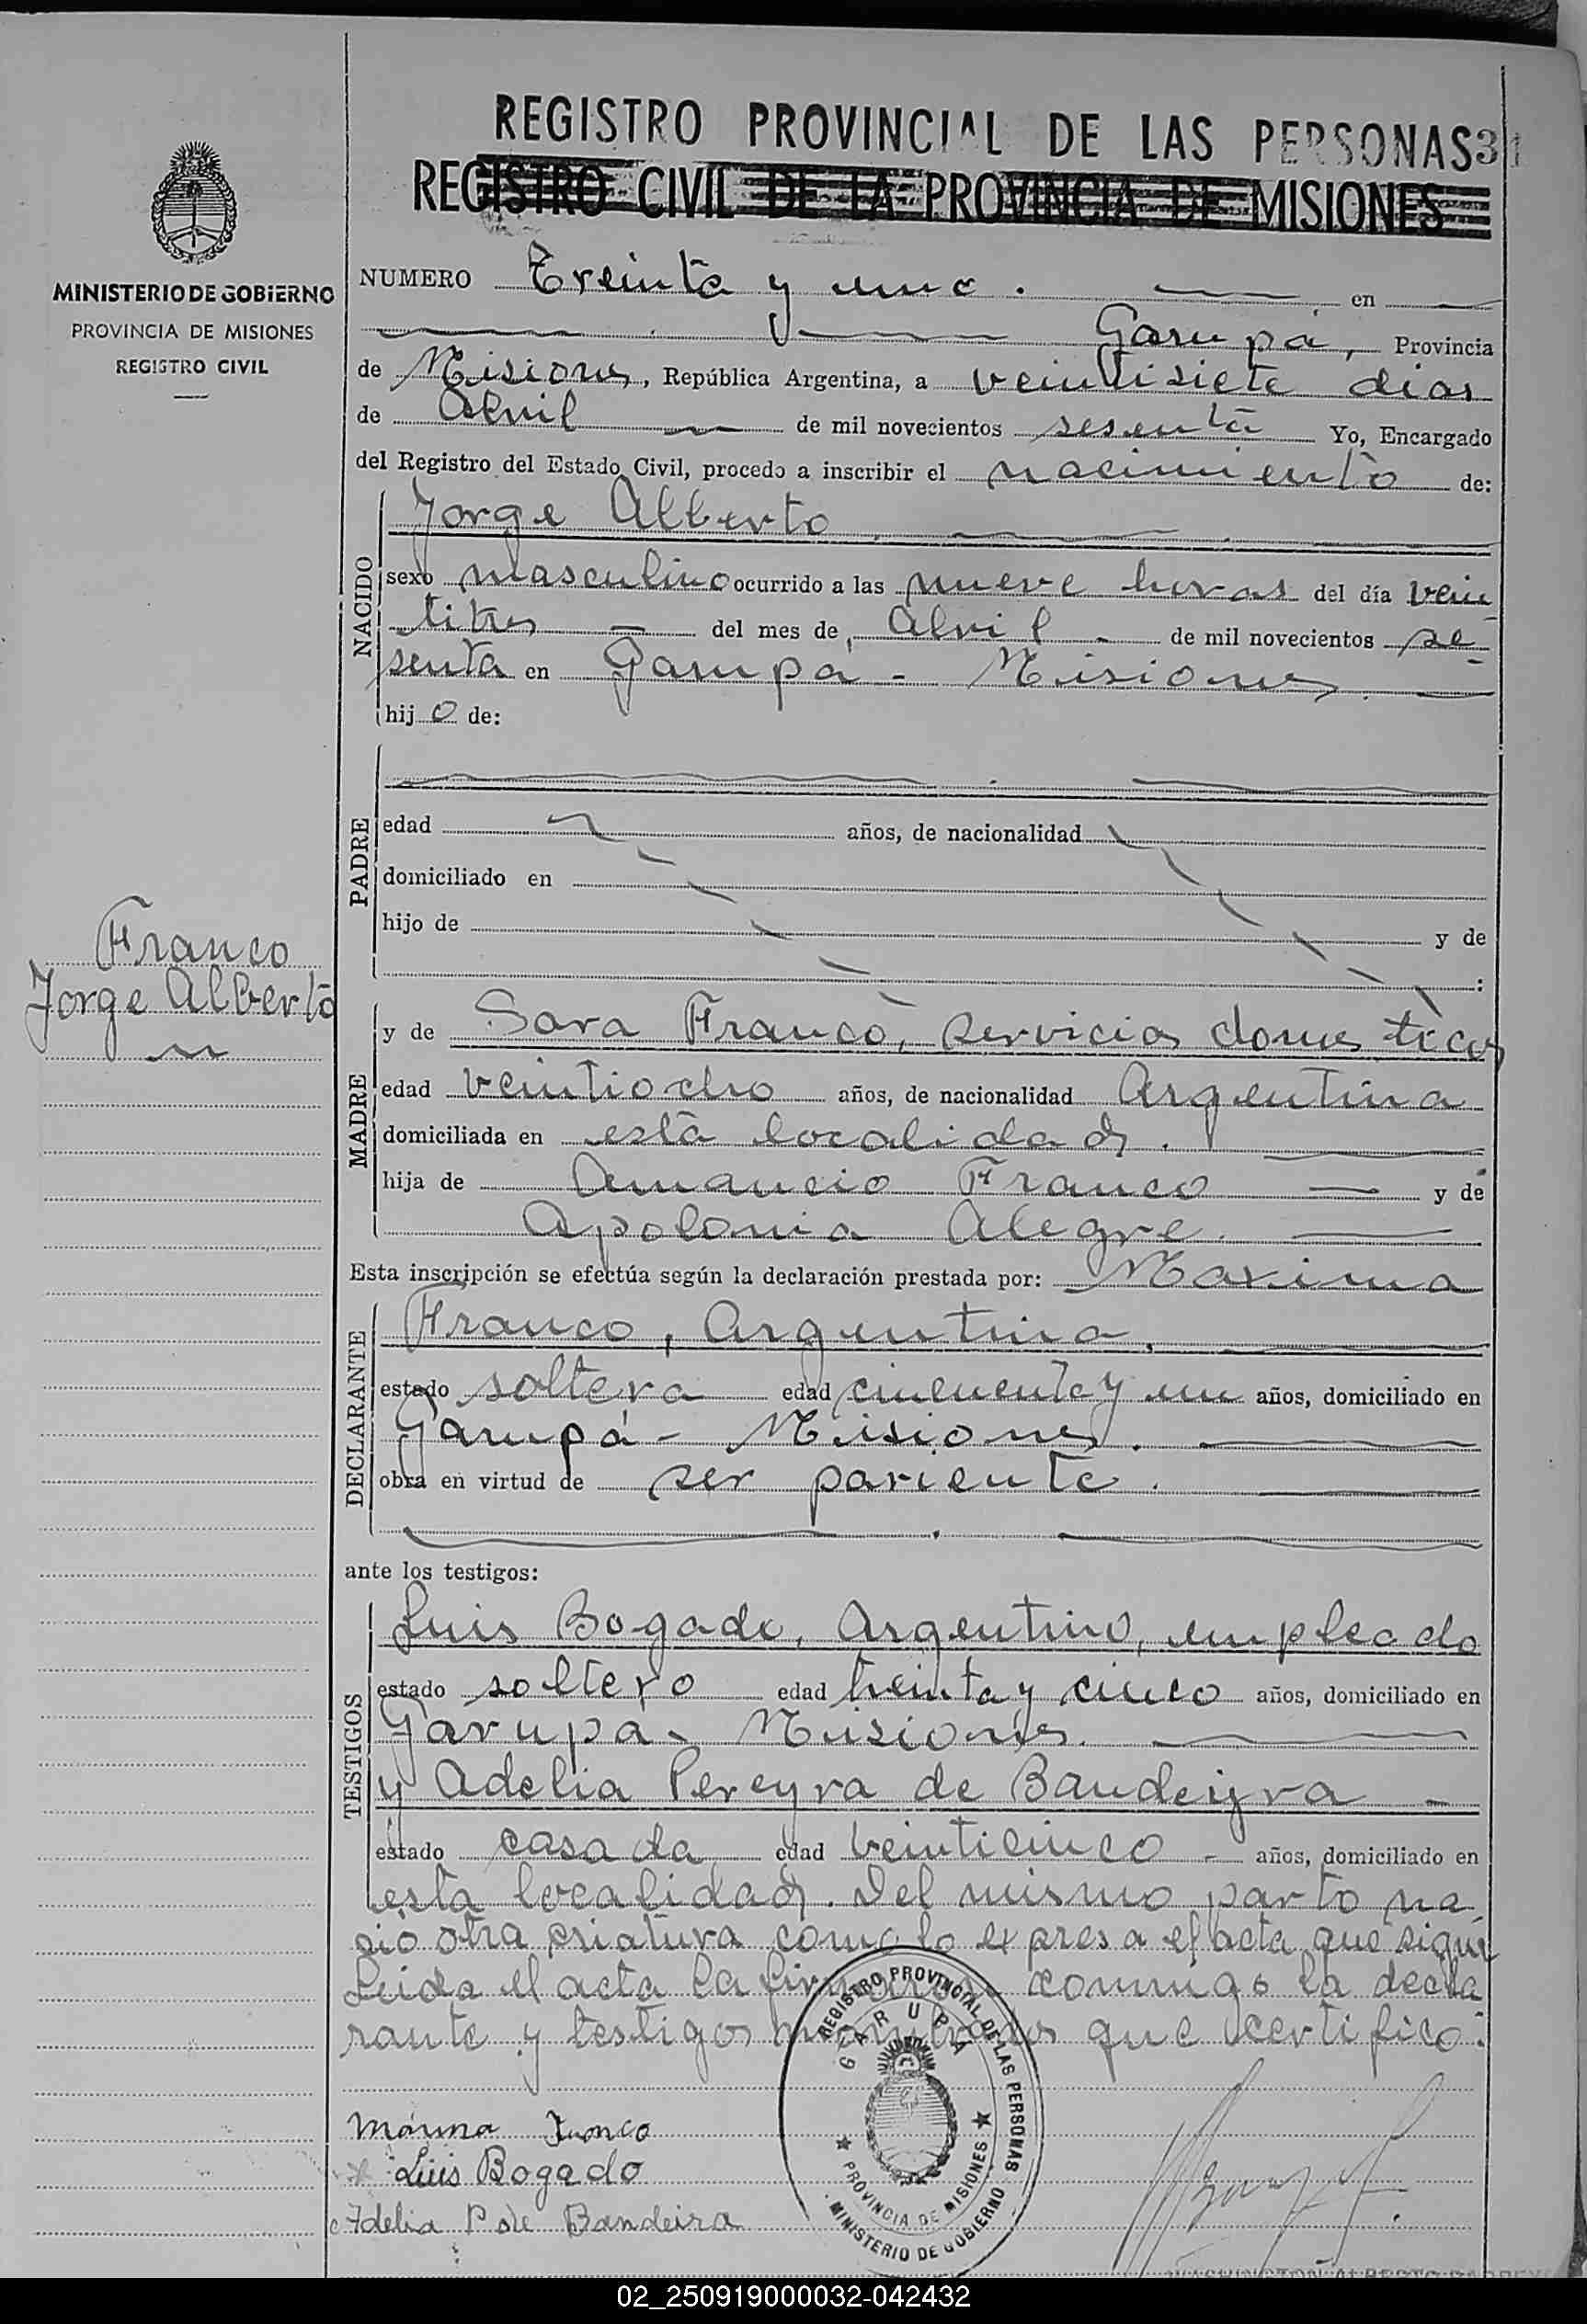 REGISTRO PROVINCIAL DE LAS PERSONAS 31
REGISTRO CIVIL DE LA PROVINCIA DE MISIONES
MINISTERIO DE GOBIERNO
PROVINCIA DE MISIONES
REGISTRO CIVIL
NUMERO Treinta y uno. en
Garupá, Provincia
de Misiones, República Argentina, a veintisiete dias
de Abril de mil novecientos sesenta Yo, Encargado
del Registro del Estado Civil, procedo a inscribir el nacimiento de:
NACIDO
Jorge Alberto
sexo masculino ocurrido a las nueve horas del día vein
titres del mes de Abril de mil novecientos se-
senta en Garupá - Misiones.
hijo de:
PADRE
edad años, de nacionalidad
domiciliado en
hijo de y de
:
Franco
Jorge Alberto
MADRE
y de Sara Franco, servicios domesticos
edad veintiocho años, de nacionalidad Argentina
domiciliada en esta localidad.
hija de Amancio Franco y de
Apolonia Alegre.
Esta inscripción se efectúa según la declaración prestada por: Maxima
DECLARANTE
Franco, Argentina,
estado soltera edad cincuenta y un años, domiciliado en
Garupá - Misiones.
obra en virtud de ser pariente.
ante los testigos:
TESTIGOS
Luis Bogado, Argentino, empleado
estado soltero edad treinta y cinco años, domiciliado en
Garupá - Misiones.
y Adelia Pereyra de Bandeyra -
estado casada edad veinticinco - años, domiciliado en
esta localidad. Del mismo parto na
ció otra criatura como lo expresa el acta que sigue
Leida el acta la firmaron conmigo la decla
rante y testigos nombrados que certifico.
REGISTRO PROVINCIAL DE LAS PERSONAS
GARUPA
PROVINCIA DE MISIONES
MINISTERIO DE GOBIERNO
Máxima Franco
Luis Bogado
Adelia P de Bandeira
02_250919000032-042432